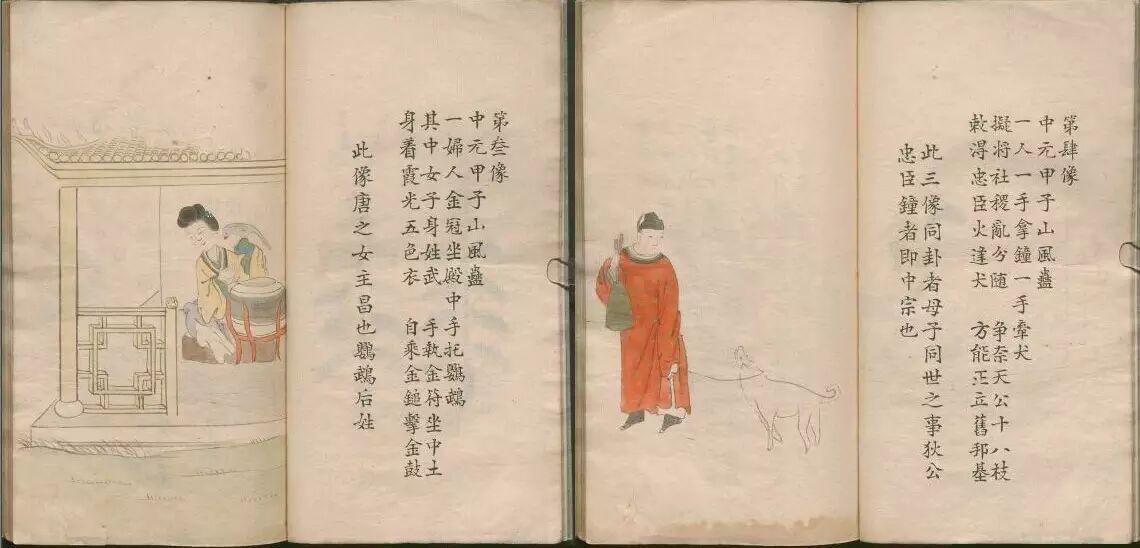 第叁像
中元甲子山風蠱
一婦人金冠坐殿中手托鸚鵡
其中女子身姓武　手執金符坐中土
身着霞光五色衣　自乘金鎚擊金鼓
此像唐之女主昌也鸚鵡后姓
第肆像
中元甲子山風蠱
一人一手拿鐘一手牽犬
擬將社稷亂分随　争奈天公十八枝
敕淂忠臣火逹犬　方能正立舊邦基
此三像同卦者母子同世之事狄公
忠臣鐘者即中宗也